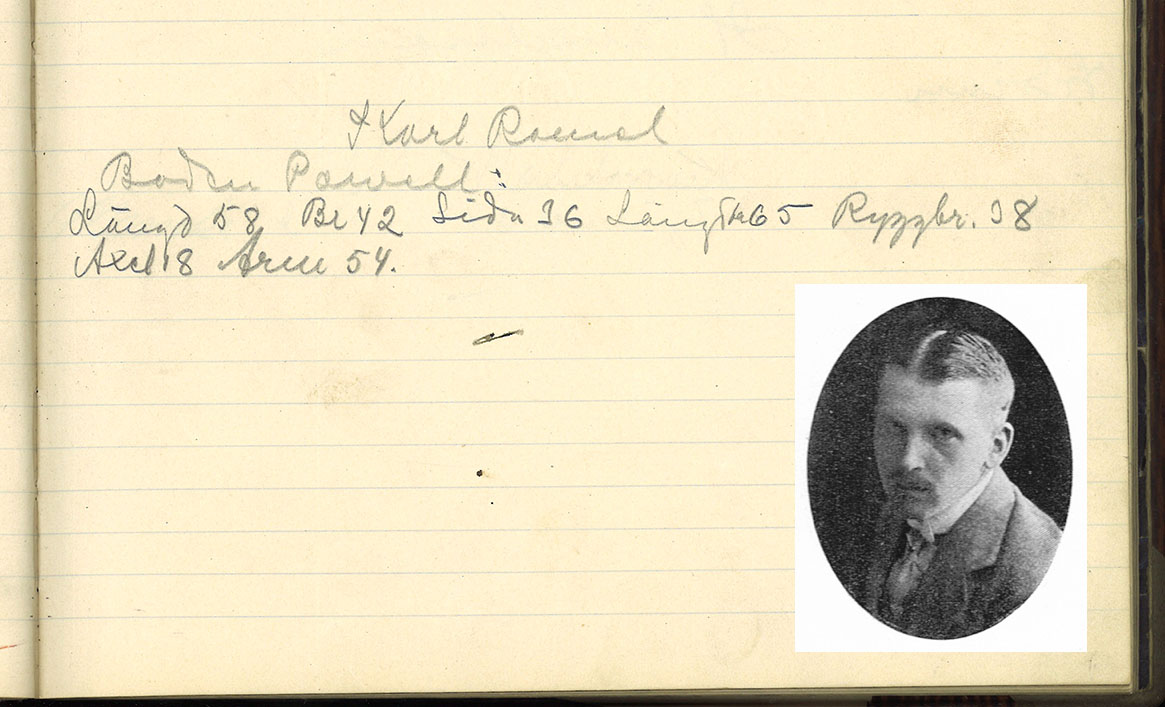 Karl Romel
Baden Powell:
Längd 58 Br 42 Sida 36 Längd 65 Ryggbr. 38
Axel 18 Arm 54.